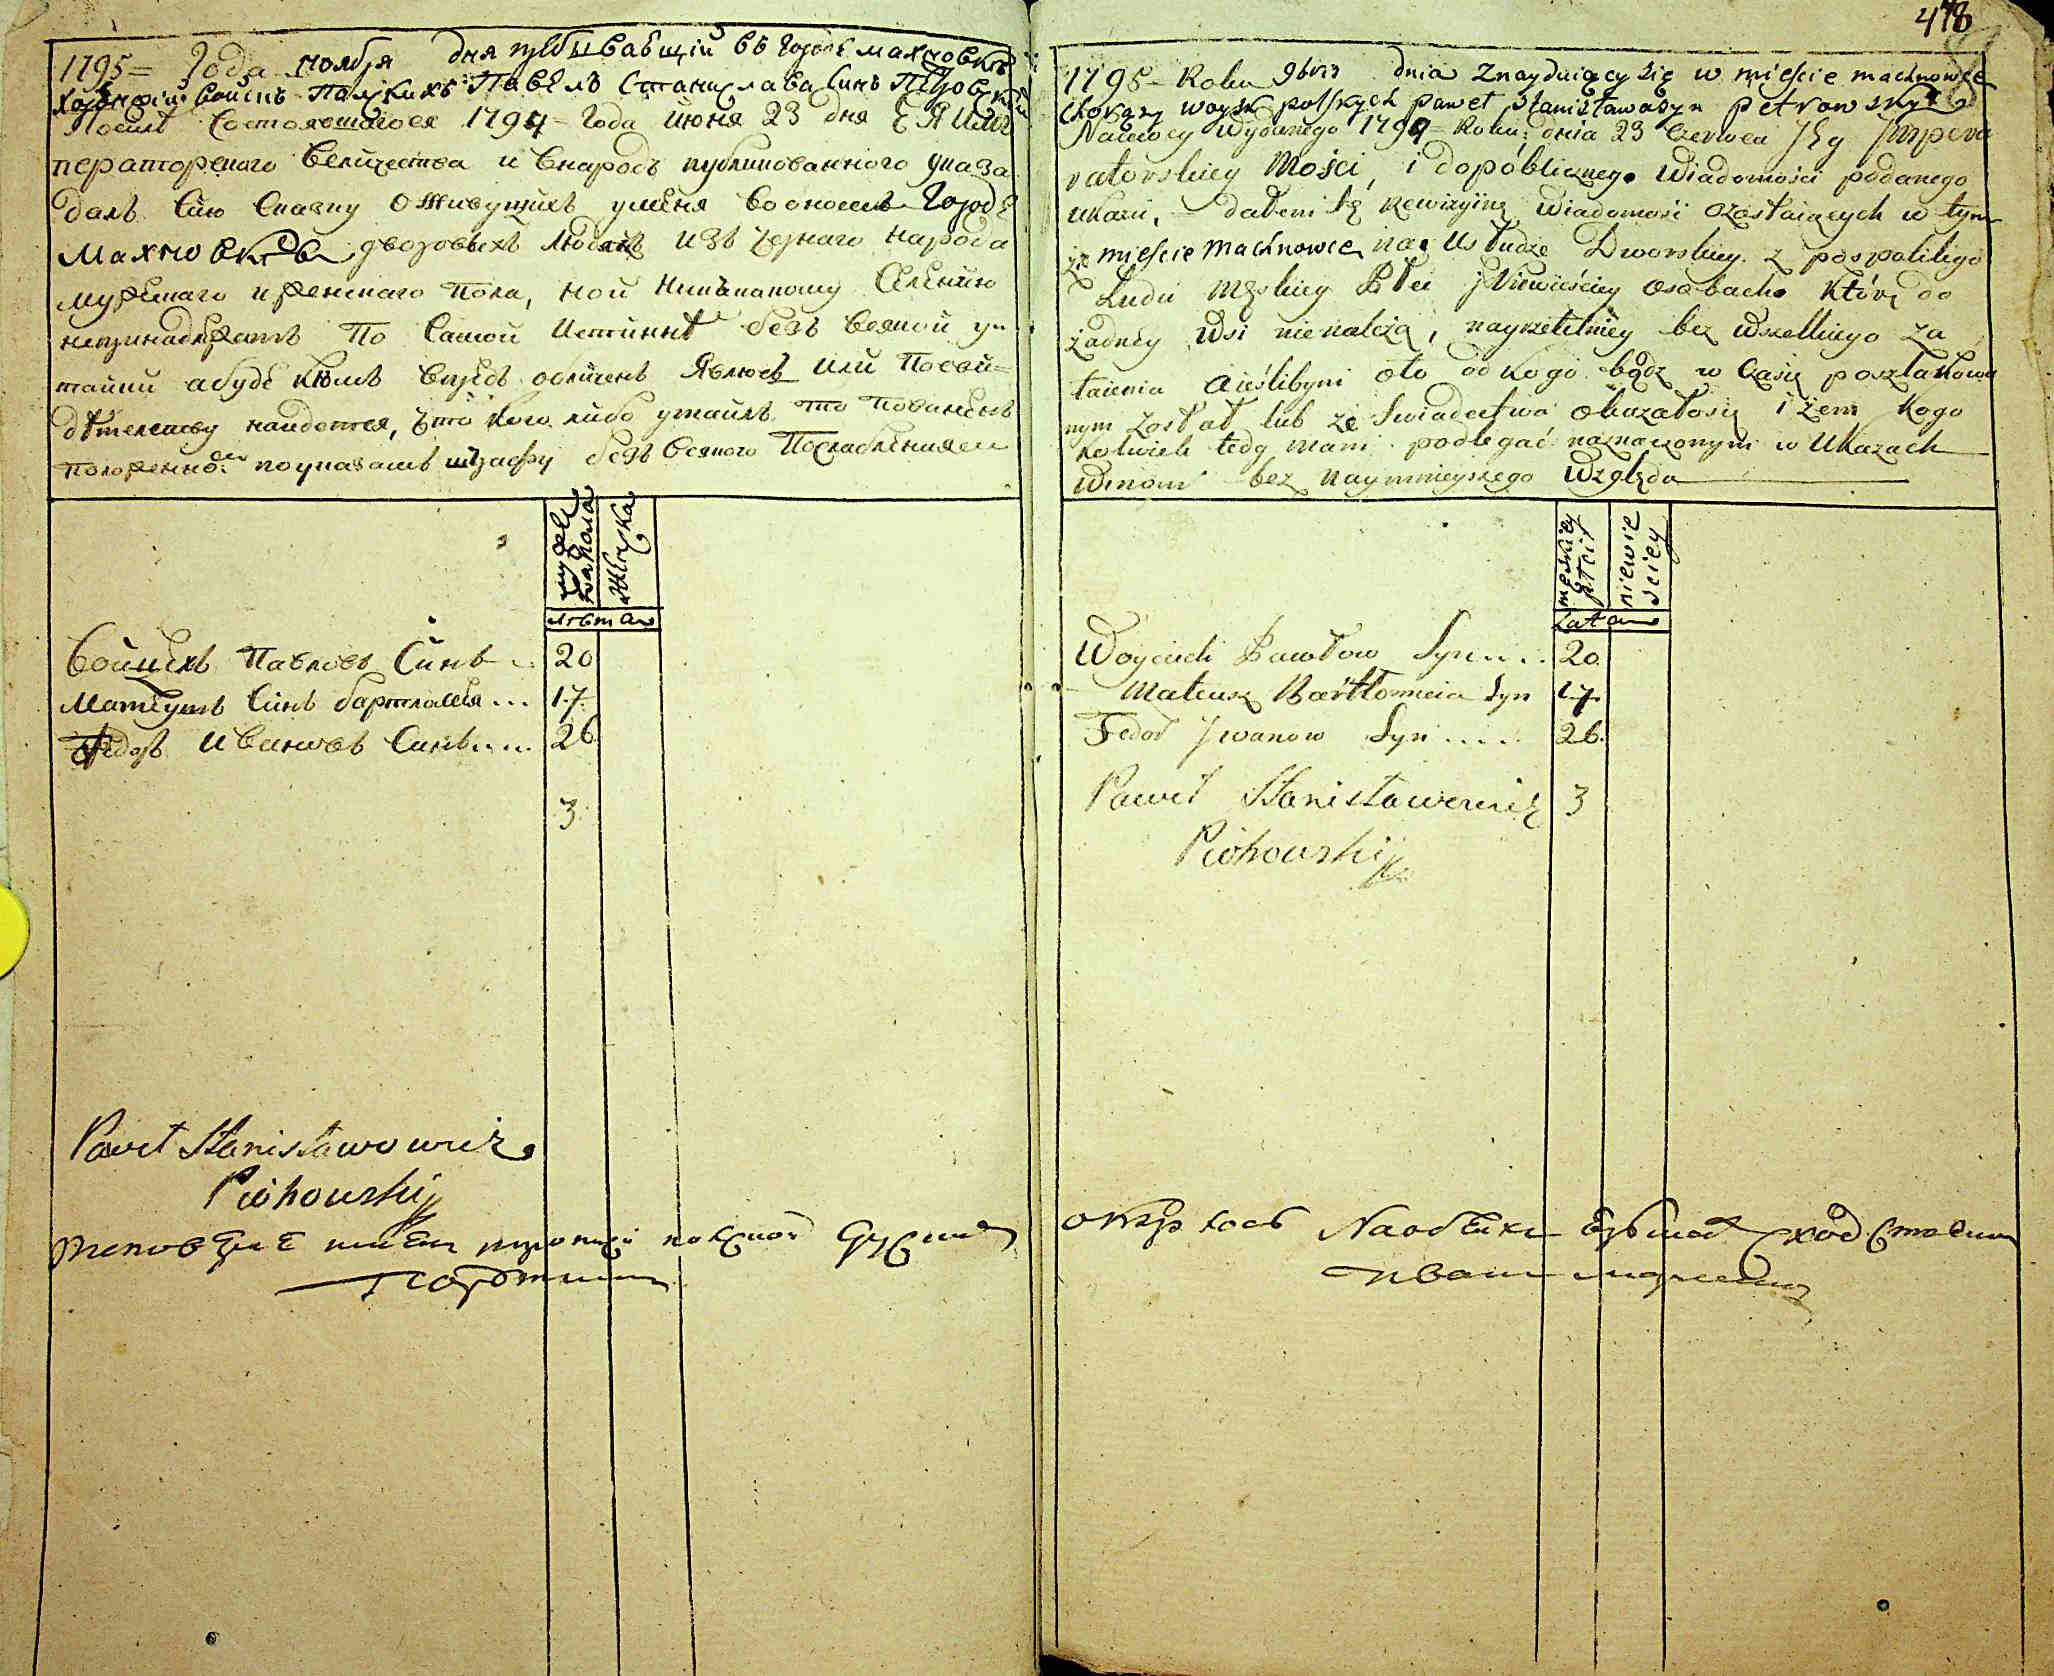 1795= Года ноября дня пребывающій въ городе махновке
хоронжій воискъ Полскихъ Павелъ Станислава Синъ
После Состоявшагося 1794= Года Июня 23 дня Ея Им
ператорскаго Величества и внародъ публикованного указа
далъ Сию Сказку о живущихъ уменя воономъ Городе
Махновке дворовыхъ людехъ изъ чернаго народа
мужескаго и женскаго пола, кои никъ какому Селению
непринадлежатъ По Самой Истинне безъ всякой у
тайки а буде кемъ впредь обличенъ Явлюсь или По сви=
детелству найдется, что кого либо утаилъ то повиненъ
положенному по указамъ штрафу безъ всякого Послабления
мужеска пола
женска
летами
Войцехъ Павловъ Синъ .. 20
Матеушъ Синъ бартламея ... 17.
Федоръ Ивановъ Синъ.... 26.
3.
Paweł Stanisławowicz
Piotrowski
478
1795- Roku 9bris dnia Znayduiący się w mieście machnowce
Chorązy woysk polskych paweł Stanisławasyn petrowskyi
Namocy wydanego 1794= Roku dnia 23 Czerwca Jey Impera
ratorskiey Mości, i dopóbliczney Wiadomości podanego
ukazu, dałem tę Rewizyiną Wiadomość ozostaiących w tym
że mieście machnowce na Usłudze Dworskiey z pospolitego
Ludu Męskiey Płci j Niewieściey osobach Którę do
żadney Wsi nienależą, nayrzetelniey bez Wszelkiego za
taienia aieślibym oto od kogo bądz w Czasie poszlakowa
nym został lub ze Swiadectwa okazałosię iżem Kogo
kolwiek tedy mam podlegać naznaczonym w Ukazach
Winom bez naymnieyszego Względu
męskiey płci
niewie sciey
Lat
Woyciech Pawłow Syn.... 20.
Mateusz Bartłomieia Syn 17.
Fedor Jwanow Syn ..... 26.
Paweł Stanisławowicz 3
Piotrowski